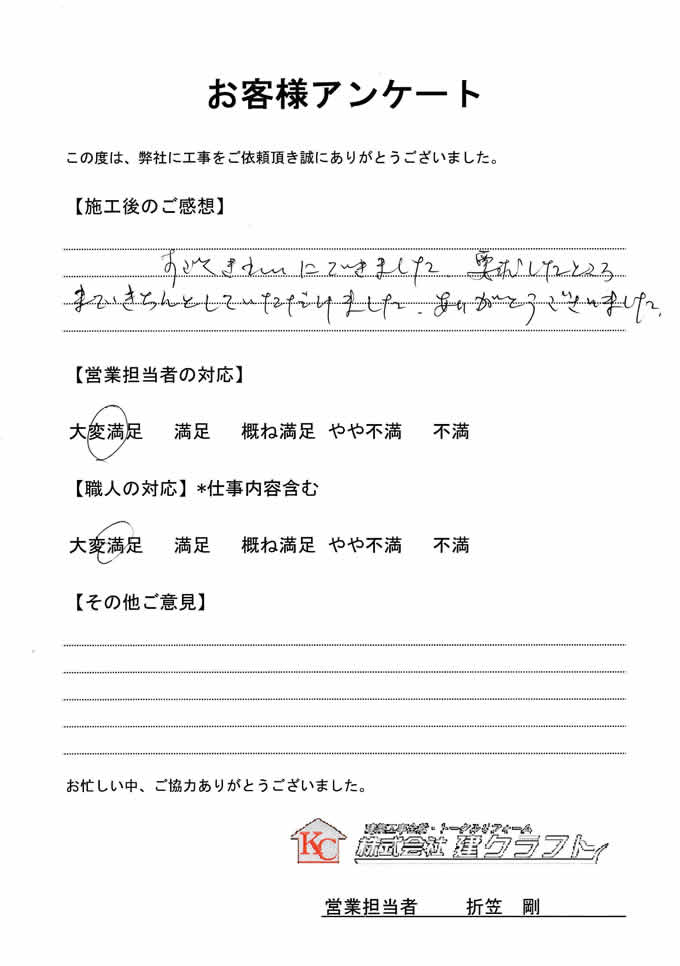 お客様アンケート
この度は、弊社に工事をご依頼頂き誠にありがとうございました。
【施工後のご感想】
すごくきれいにできました。要求したところ
まできちんとしていただけました。ありがとうございました。
【営業担当者の対応】
大変満足 満足 概ね満足 やや不満 不満
【職人の対応】*仕事内容含む
大変満足 満足 概ね満足 やや不満 不満
【その他ご意見】
お忙しい中、ご協力ありがとうございました。
建築工事全般・トータルリフォーム
KC 株式会社 建クラフト
営業担当者 折笠 剛